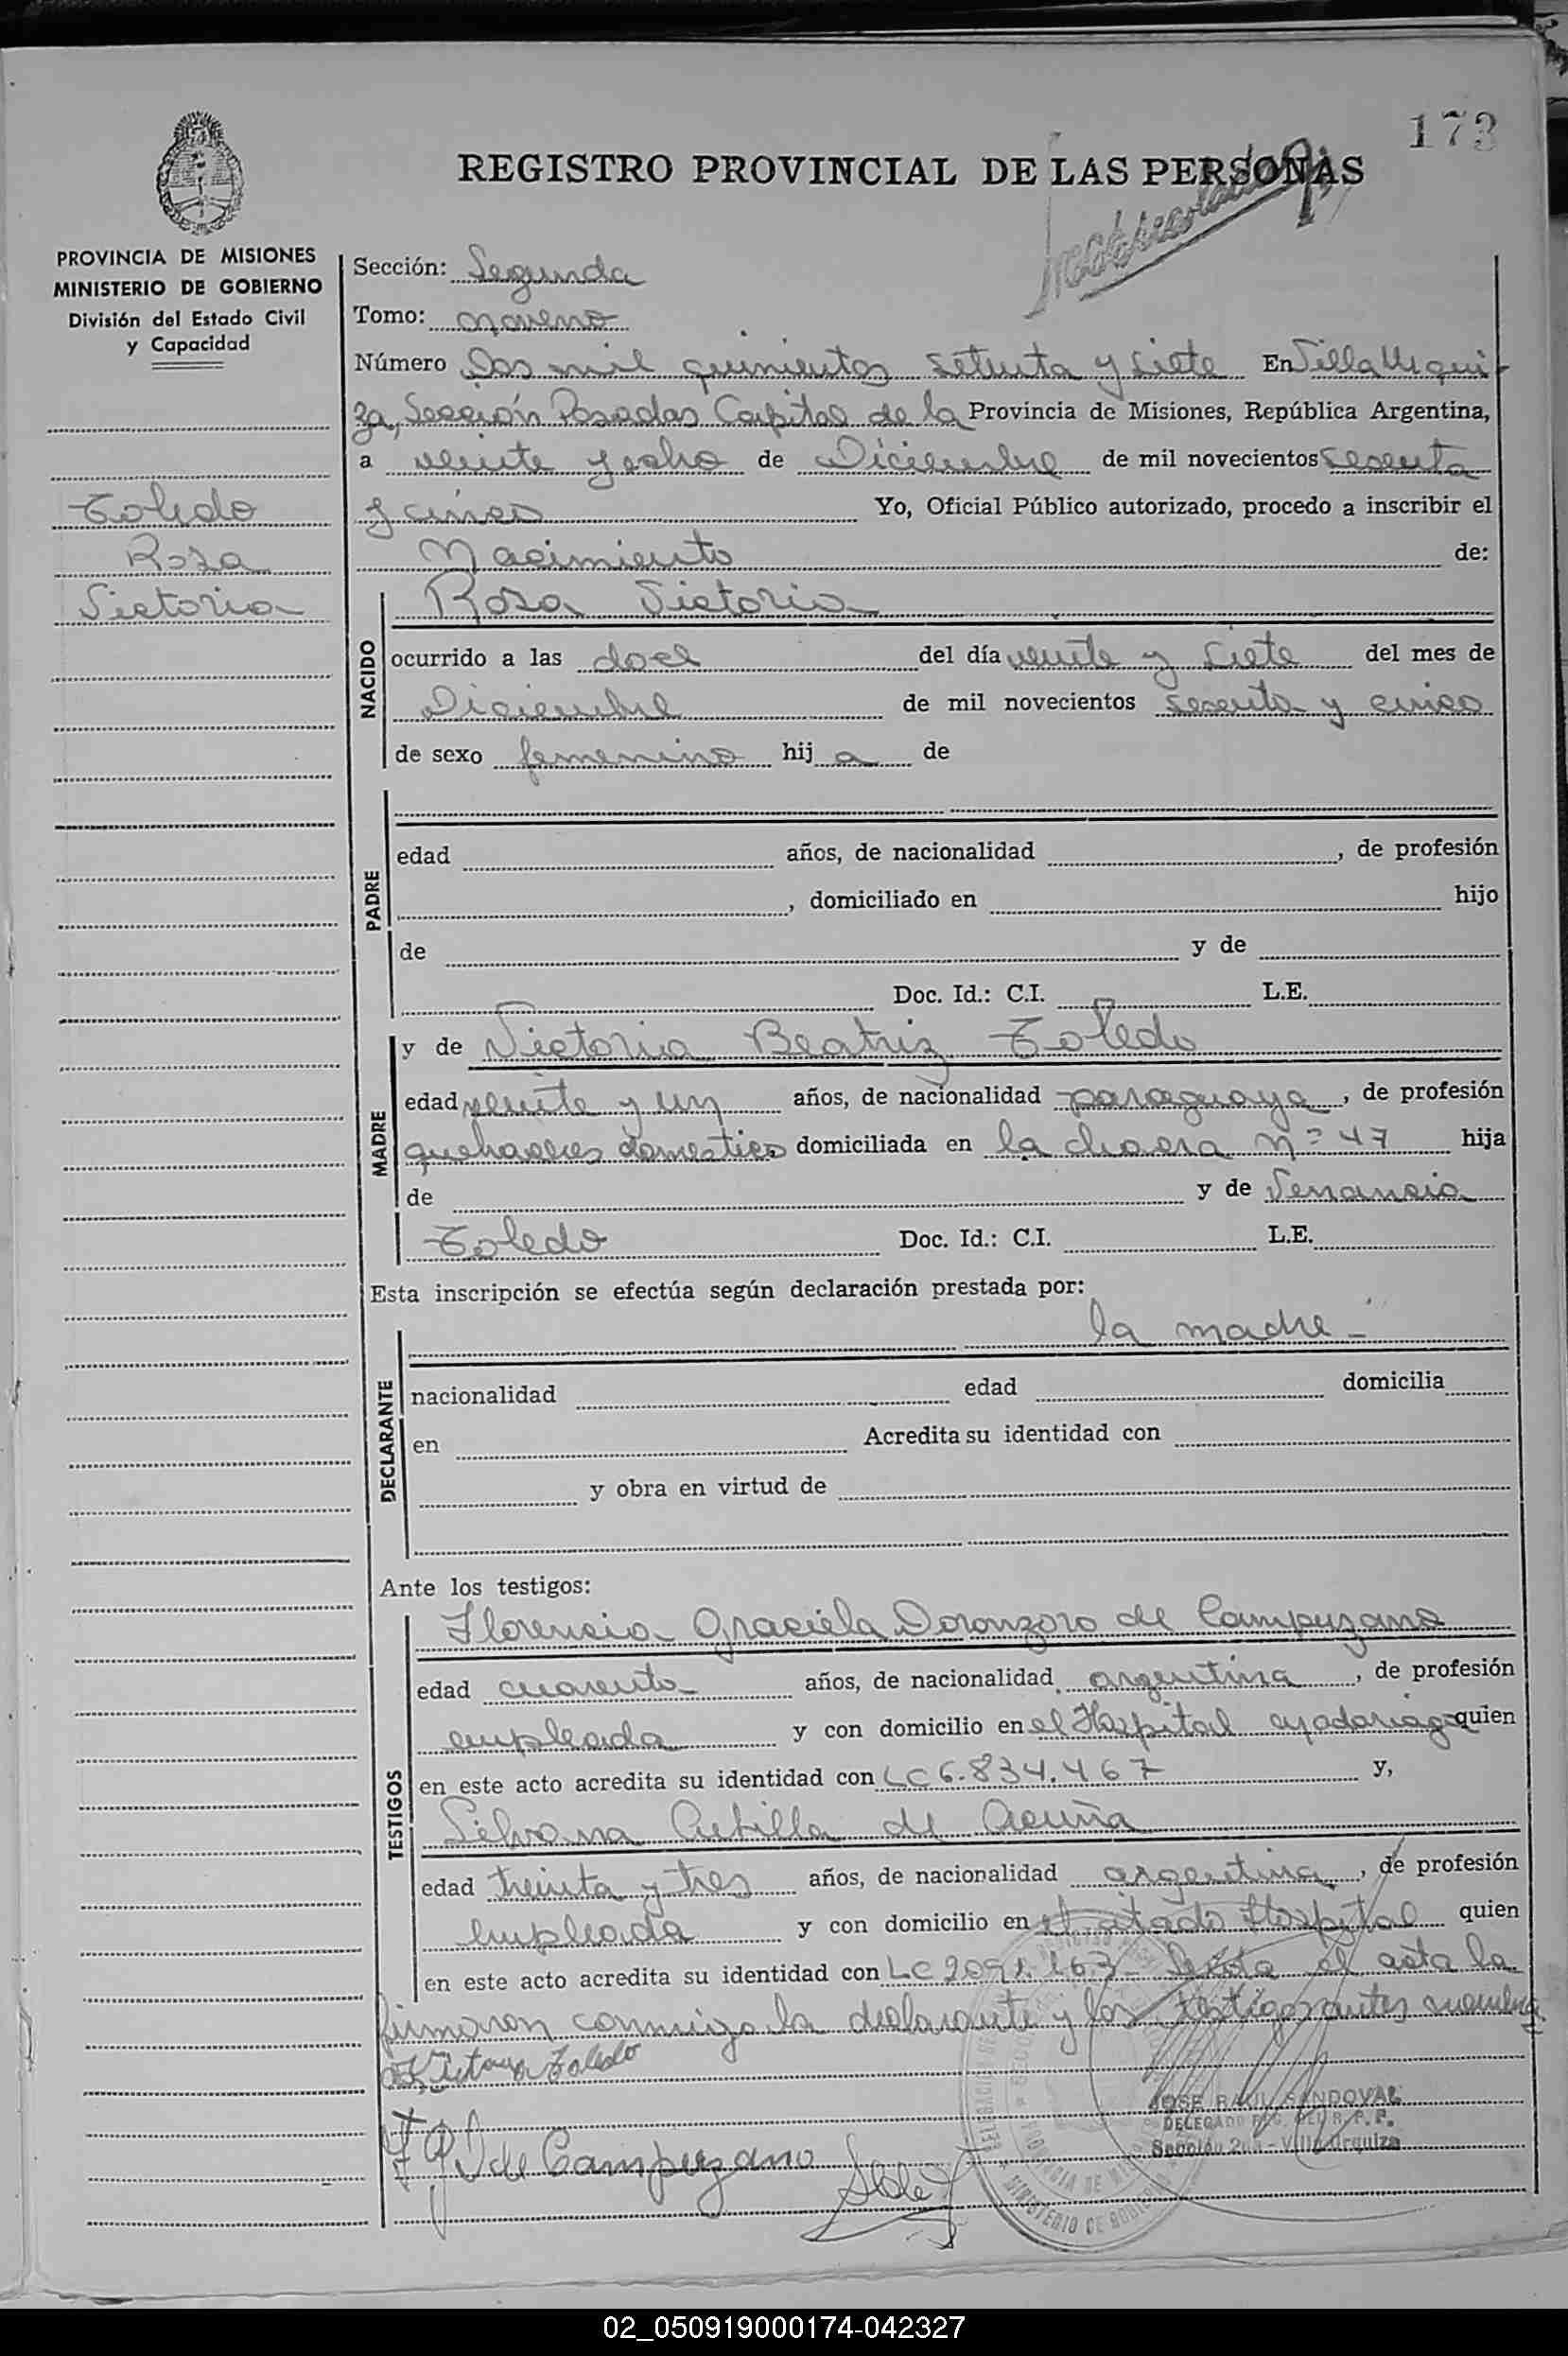 173
REGISTRO PROVINCIAL DE LAS PERSONAS
PROVINCIA DE MISIONES
MINISTERIO DE GOBIERNO
División del Estado Civil
y Capacidad
Toledo
Rosa
Victoria
Sección: Segunda
Tomo: noveno
Número Dos mil quinientos setenta y siete En Villa Urqui
za, Sección Posadas Capital de la Provincia de Misiones, República Argentina,
a veinte y ocho de Diciembre de mil novecientos sesenta
y cinco Yo, Oficial Público autorizado, procedo a inscribir el
Nacimiento de:
NACIDO
Rosa Victoria
ocurrido a las doce del día veinte y siete del mes de
Diciembre de mil novecientos sesenta y cinco
de sexo femenino hij a de
PADRE
edad años, de nacionalidad , de profesión
, domiciliado en hijo
de y de
Doc. Id.: C.I. L.E.
MADRE
y de Victoria Beatriz Toledo
edad veinte y un años, de nacionalidad paraguaya, de profesión
quehaceres domestico domiciliada en la chacra nº 47 hija
de y de Venancia
Toledo Doc. Id.: C.I. L.E.
Esta inscripción se efectúa según declaración prestada por:
DECLARANTE
la madre -
nacionalidad edad domicilia
en Acredita su identidad con
y obra en virtud de
Ante los testigos:
TESTIGOS
Florencia Graciela Doronzoro de Campuzano
edad cuarenta años, de nacionalidad argentina, de profesión
empleada y con domicilio en el Hospital quien
en este acto acredita su identidad con LC 6.834.467 y,
Silvana de Acuña
edad treinta y tres años, de nacionalidad argentina, de profesión
empleada y con domicilio en el citado Hospital quien
en este acto acredita su identidad con LC 2091.163 Leída el acta la
firmaron conmigo la declarante y los testigos antes
Victoria Toledo
F G D de Campuzano
JOSE RAUL SANDOVAL
DELEGADO REG. DEL R. P. P.
Sección 2da - Villa Urquiza
MINISTERIO DE GOBIERNO
02_050919000174-042327